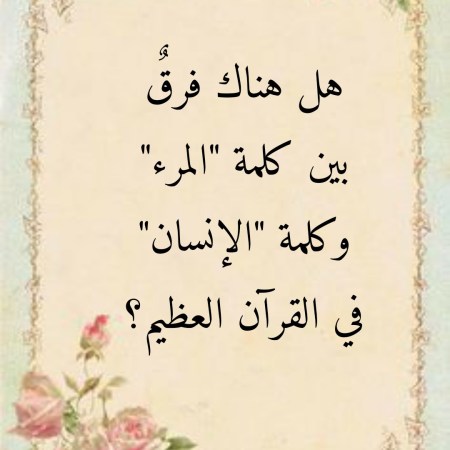 هل هناك فرقٌ
بين كلمة "المرء"
وكلمة "الإنسان"
في القرآن العظيم؟